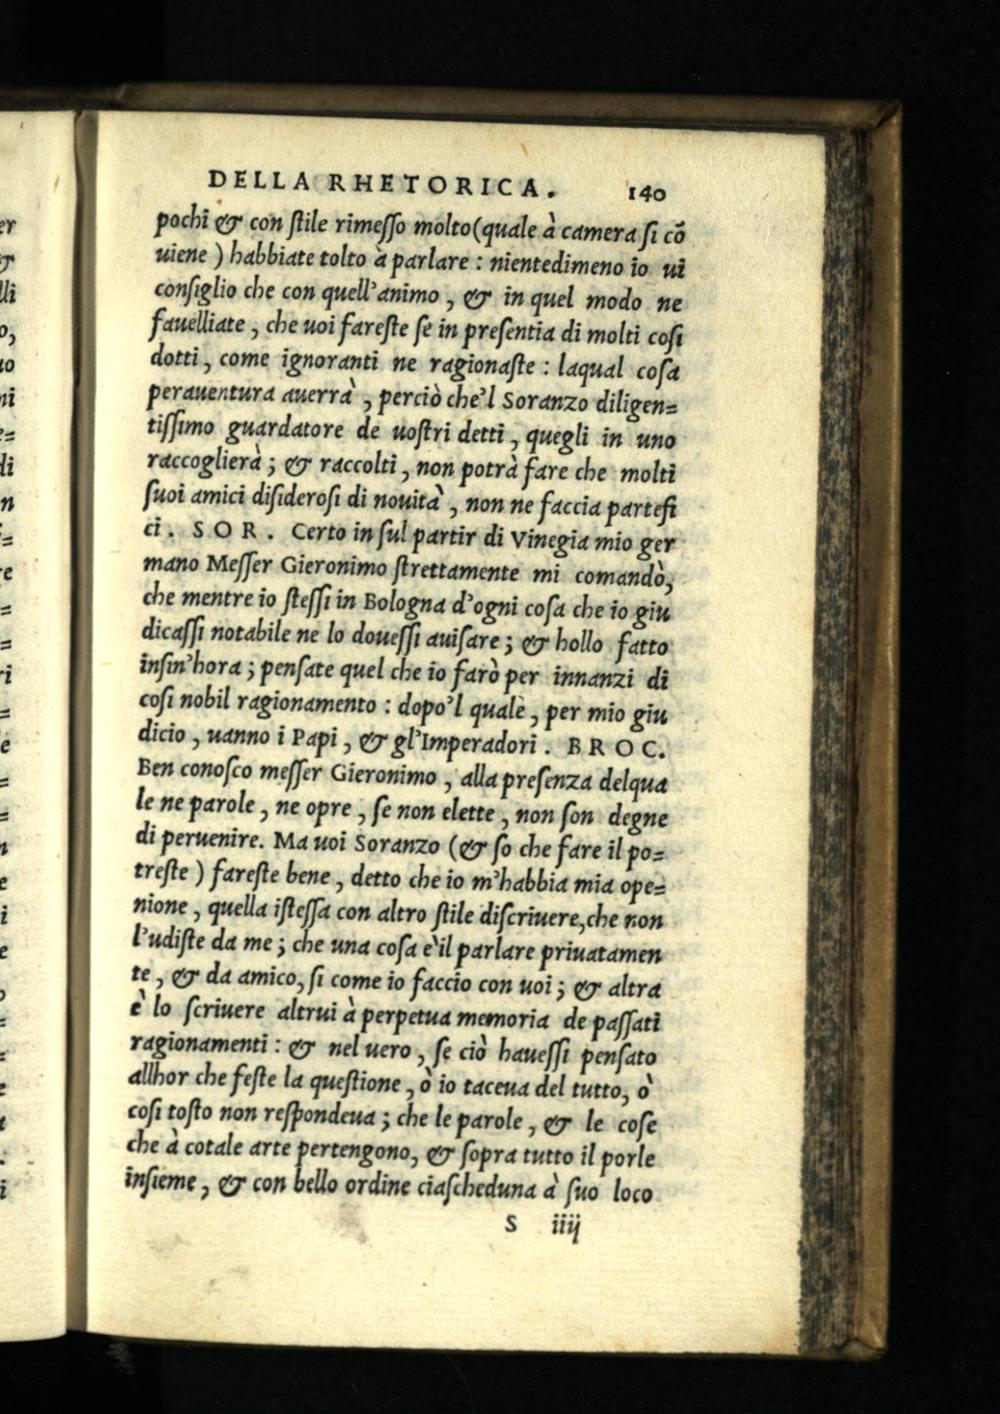 DELLA RHETORICA. 140
pochi & con ſtile rimeſſo molto(quale à camera ſi cõ
uiene ) habbiate tolto à parlare : nientedimeno io ui
conſiglio che con quell'animo , & in quel modo ne
fauelliate , che uoi fareſte ſe in preſentia di molti coſi
dotti , come ignoranti ne ragionaſte : laqual coſa
perauentura auerrà , perciò che'l Soranzo diligen=
tiſſimo guardatore de uoſtri detti , quegli in uno
raccoglierà ; & raccolti , non potrà fare che molti
ſuoi amici diſideroſi di nouità , non ne faccia partefi
ci . SOR . Certo in ſul partir di Vinegia mio ger
mano Meſſer Gieronimo ſtrettamente mi comandò,
che mentre io ſteſſi in Bologna d'ogni coſa che io giu
dicaſſi notabile ne lo doueſſi auiſare ; & hollo fatto
inſin'hora ; penſate quel che io farò per innanzi di
coſi nobil ragionamento : dopo'l quale , per mio giu
dicio , uanno i Papi , & gl'Imperadori . BROC.
Ben conoſco meſſer Gieronimo , alla preſenza delqua
le ne parole , ne opre , ſe non elette , non ſon degne
di peruenire. Ma uoi Soranzo (& ſo che fare il po=
treſte ) fareſte bene , detto che io m'habbia mia ope=
nione , quella iſteſſa con altro ſtile diſcriuere,che non
l'udiſte da me ; che una coſa è il parlare priuatamen
te , & da amico, ſi come io faccio con uoi ; & altra
è lo ſcriuere altrui à perpetua memoria de paſſati
ragionamenti : & nel uero , ſe ciò haueſſi penſato
allhor che feſte la queſtione , ò io taceua del tutto, ò
coſi toſto non reſpondeua ; che le parole , & le coſe
che à cotale arte pertengono, & ſopra tutto il porle
inſieme , & con bello ordine ciaſcheduna à ſuo loco
S iiij